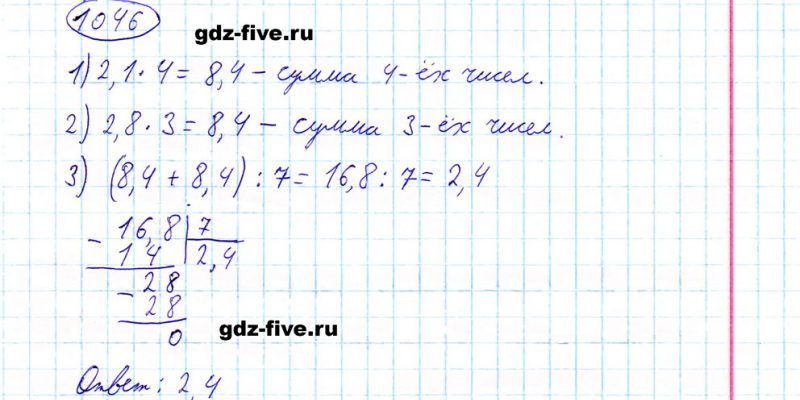 1046
gdz-five.ru
1) 2,1 · 4 = 8,4 – сумма 4-ёх чисел.
2) 2,8 · 3 = 8,4 – сумма 3-ёх чисел.
3) (8,4 + 8,4) : 7 = 16,8 : 7 = 2,4
- 16,8 | 7
14 | 2,4
- 28
28
0
gdz-five.ru
Ответ: 2,4